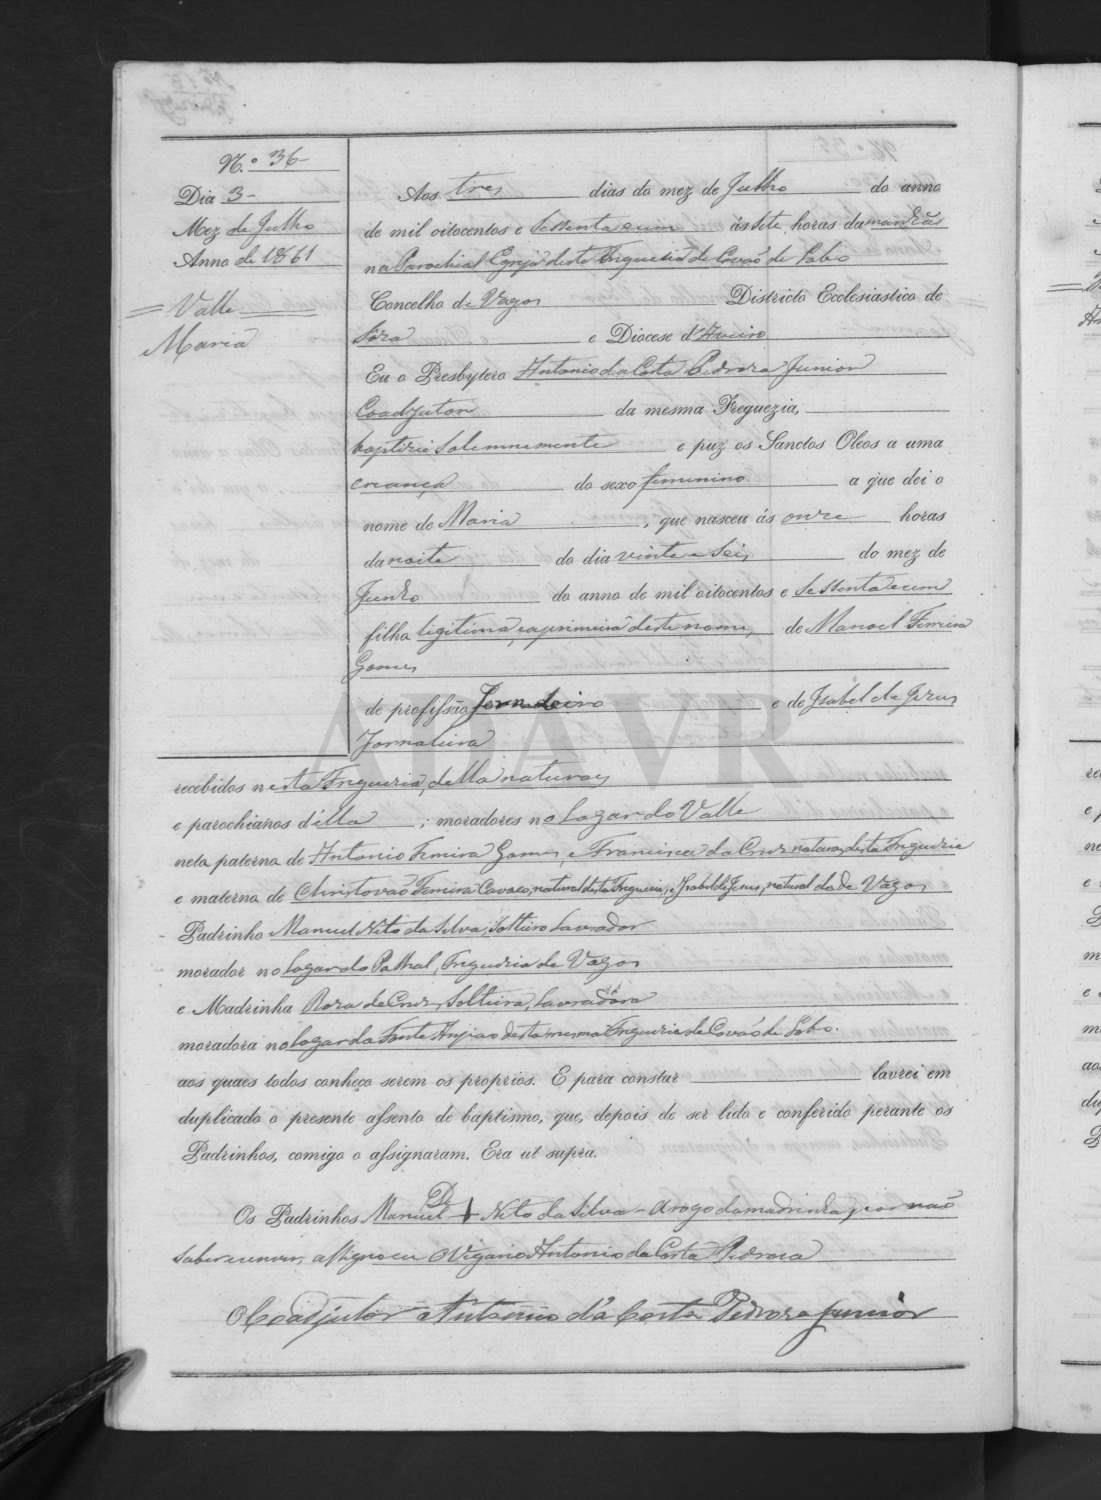 N.º 36
Dia 3
Mez de Julho
Anno de 1861
Valle
Maria
Aos tres dias do mez de Julho do anno
de mil oitocentos e sessenta e um ás sete horas da manhãa
na Parochial Egreja desta Freguezia de Covaõ do Lobo
Concelho de Vagos Districto Ecclesiastico de
e Diocese d'Aveiro
Eu o Presbytero Antonio da Costa Pedroza Junior
Coadjutor da mesma Freguezia,
baptizei Solemnemente e puz os Sanctos Oleos a uma
criança do sexo femenino a que dei o
nome de Maria, que nasceu ás onze horas
da noite do dia vinte e seis do mez de
Junho do anno de mil oitocentos e sessenta e um
filha legitima, e a primeira deste nome, de Manoel Ferreira
Gomes
de profissão Jornaleiro e de Isabel de Jezus
Jornaleira
recebidos nesta Freguezia, della naturaes
e parochianos d'ella; moradores no Logar do Valle
neta paterna de Antonio Ferreira Gomes, e Francisca da Cruz naturaes desta Freguezia
e materna de Christovaõ Ferreira Cavaco, natural desta Freguezia, e Isabel de Jesus, natural da de Vagos
Padrinho Manuel Neto da Silva, Solteiro Lavrador
morador no Logar do Pathal, Freguezia de Vagos
e Madrinha Roza de Cruz, Solteira, Lavradora
moradora no Logar da Fonte Angiao desta mesma Freguezia de Covaõ do Lobo.
aos quaes todos conheço serem os proprios. E para constar lavrei em
duplicado o presente assento de baptismo, que, depois de ser lido e conferido perante os
Padrinhos, comigo o assignaram. Era ut supra.
Os Padrinhos Manuel + Neto da Silva - Arogo da madrinha, por naõ
saber escrever, assigno eu O Vigario Antonio da Costa Pedroza
O Coadjutor Antonio da Costa Pedroza Junior
ADAVR